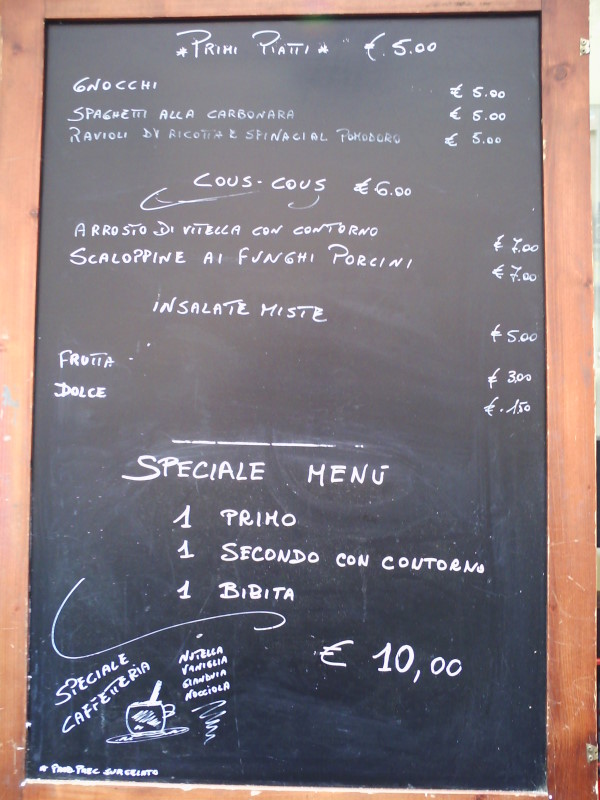 *PRIMI PIATTI* € 5.00
GNOCCHI € 5.00
SPAGHETTI ALLA CARBONARA € 5.00
RAVIOLI DI RICOTTA E SPINACI AL POMODORO € 5.00
COUS-COUS € 6.00
ARROSTO DI VITELLA CON CONTORNO € 7.00
SCALOPPINE AI FUNGHI PORCINI € 7.00
INSALATE MISTE € 5.00
FRUTTA € 3.00
DOLCE € .1,50
SPECIALE MENÚ
1 PRIMO
1 SECONDO CON CONTORNO
1 BIBITA
€ 10,00
SPECIALE
CAFFETTERIA
NUTELLA
VANIGLIA
GIANDUIA
NOCCIOLA
SURGELATO